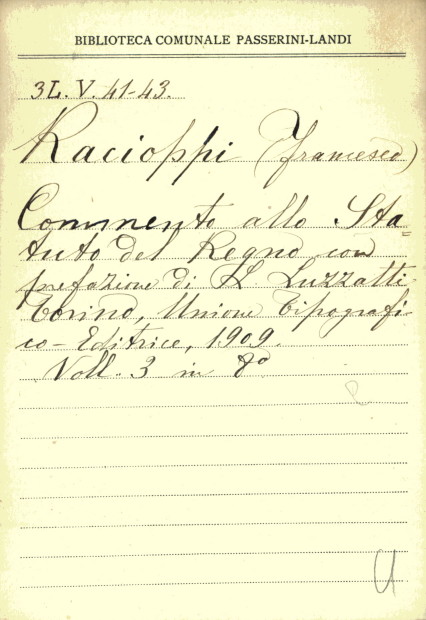 BIBLIOTECA COMUNALE PASSERINI-LANDI
3L. V. 41-43.
Racioppi (Francesco)
Commento allo Sta=
tuto del Regno con
prefazione di L. Luzzatti
Torino, Unione Tipografi-
co-Editrice, 1909.
Voll. 3 in 8º